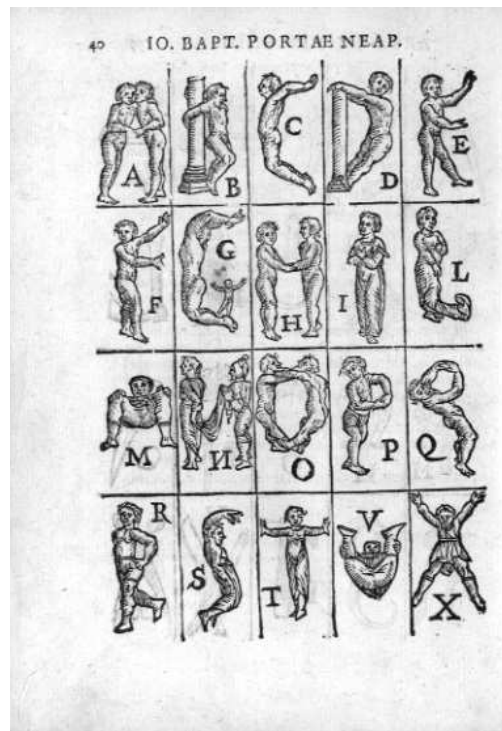 40 IO. BAPT. PORTAE NEAP.
A B C D E
F G H I L
M N O P Q
R S T V X